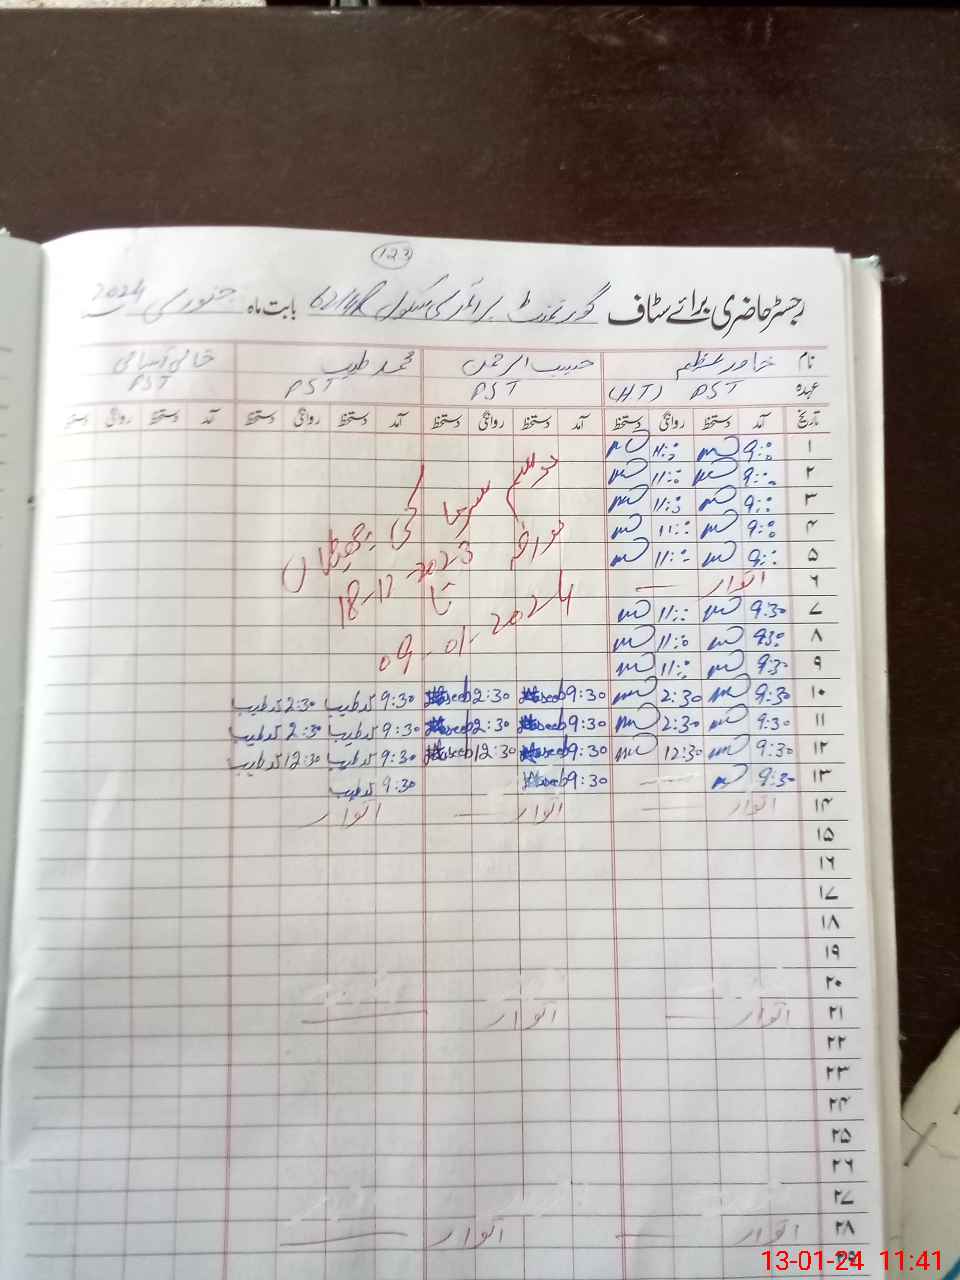 123
رجسٹر حاضری برائے سٹاف گورنمنٹ پرائمری سکول 62/4R بابت ماہ جنوری 2024
نام خاور عظیم حبیب الرحمن محمد طیب خالی آسامی
عہدہ PST (HT) PST PST PST
تاریخ آمد دستخط روانگی دستخط آمد دستخط روانگی دستخط آمد دستخط روانگی دستخط آمد دستخط روانگی دستخط
۱ 9:00 11:00
۲ 9:00 11:00
۳ 9:00 11:00
۴ 9:00 11:00
۵ 9:00 11:00
۶ اتوار
۷ 9:30 11:00
۸ 9:30 11:00
۹ 9:30 11:00
موسم سرما کی چھٹیاں
مورخہ 18-12-2023
تا
09-01-2024
۱۰ 9:30 2:30 9:30 Haseeb 2:30 Haseeb 9:30 محمد طیب 2:30 محمد طیب
۱۱ 9:30 2:30 9:30 Haseeb 2:30 Haseeb 9:30 محمد طیب 2:30 محمد طیب
۱۲ 9:30 12:30 9:30 Haseeb 12:30 Haseeb 9:30 محمد طیب 12:30 محمد طیب
۱۳ 9:30 9:30 Haseeb 9:30 محمد طیب
۱۴ اتوار اتوار اتوار
۱۵
۱۶
۱۷
۱۸
۱۹
۲۰
۲۱ اتوار اتوار
۲۲
۲۳
۲۴
۲۵
۲۶
۲۷
۲۸ اتوار اتوار
۲۹
13-01-24 11:41